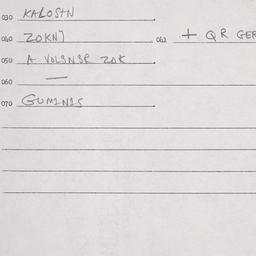 030 KALOSIN
040 ZOKNI 041 + QR GER
050 A VOLINSR ZOK
060 —
070 GUMINIS